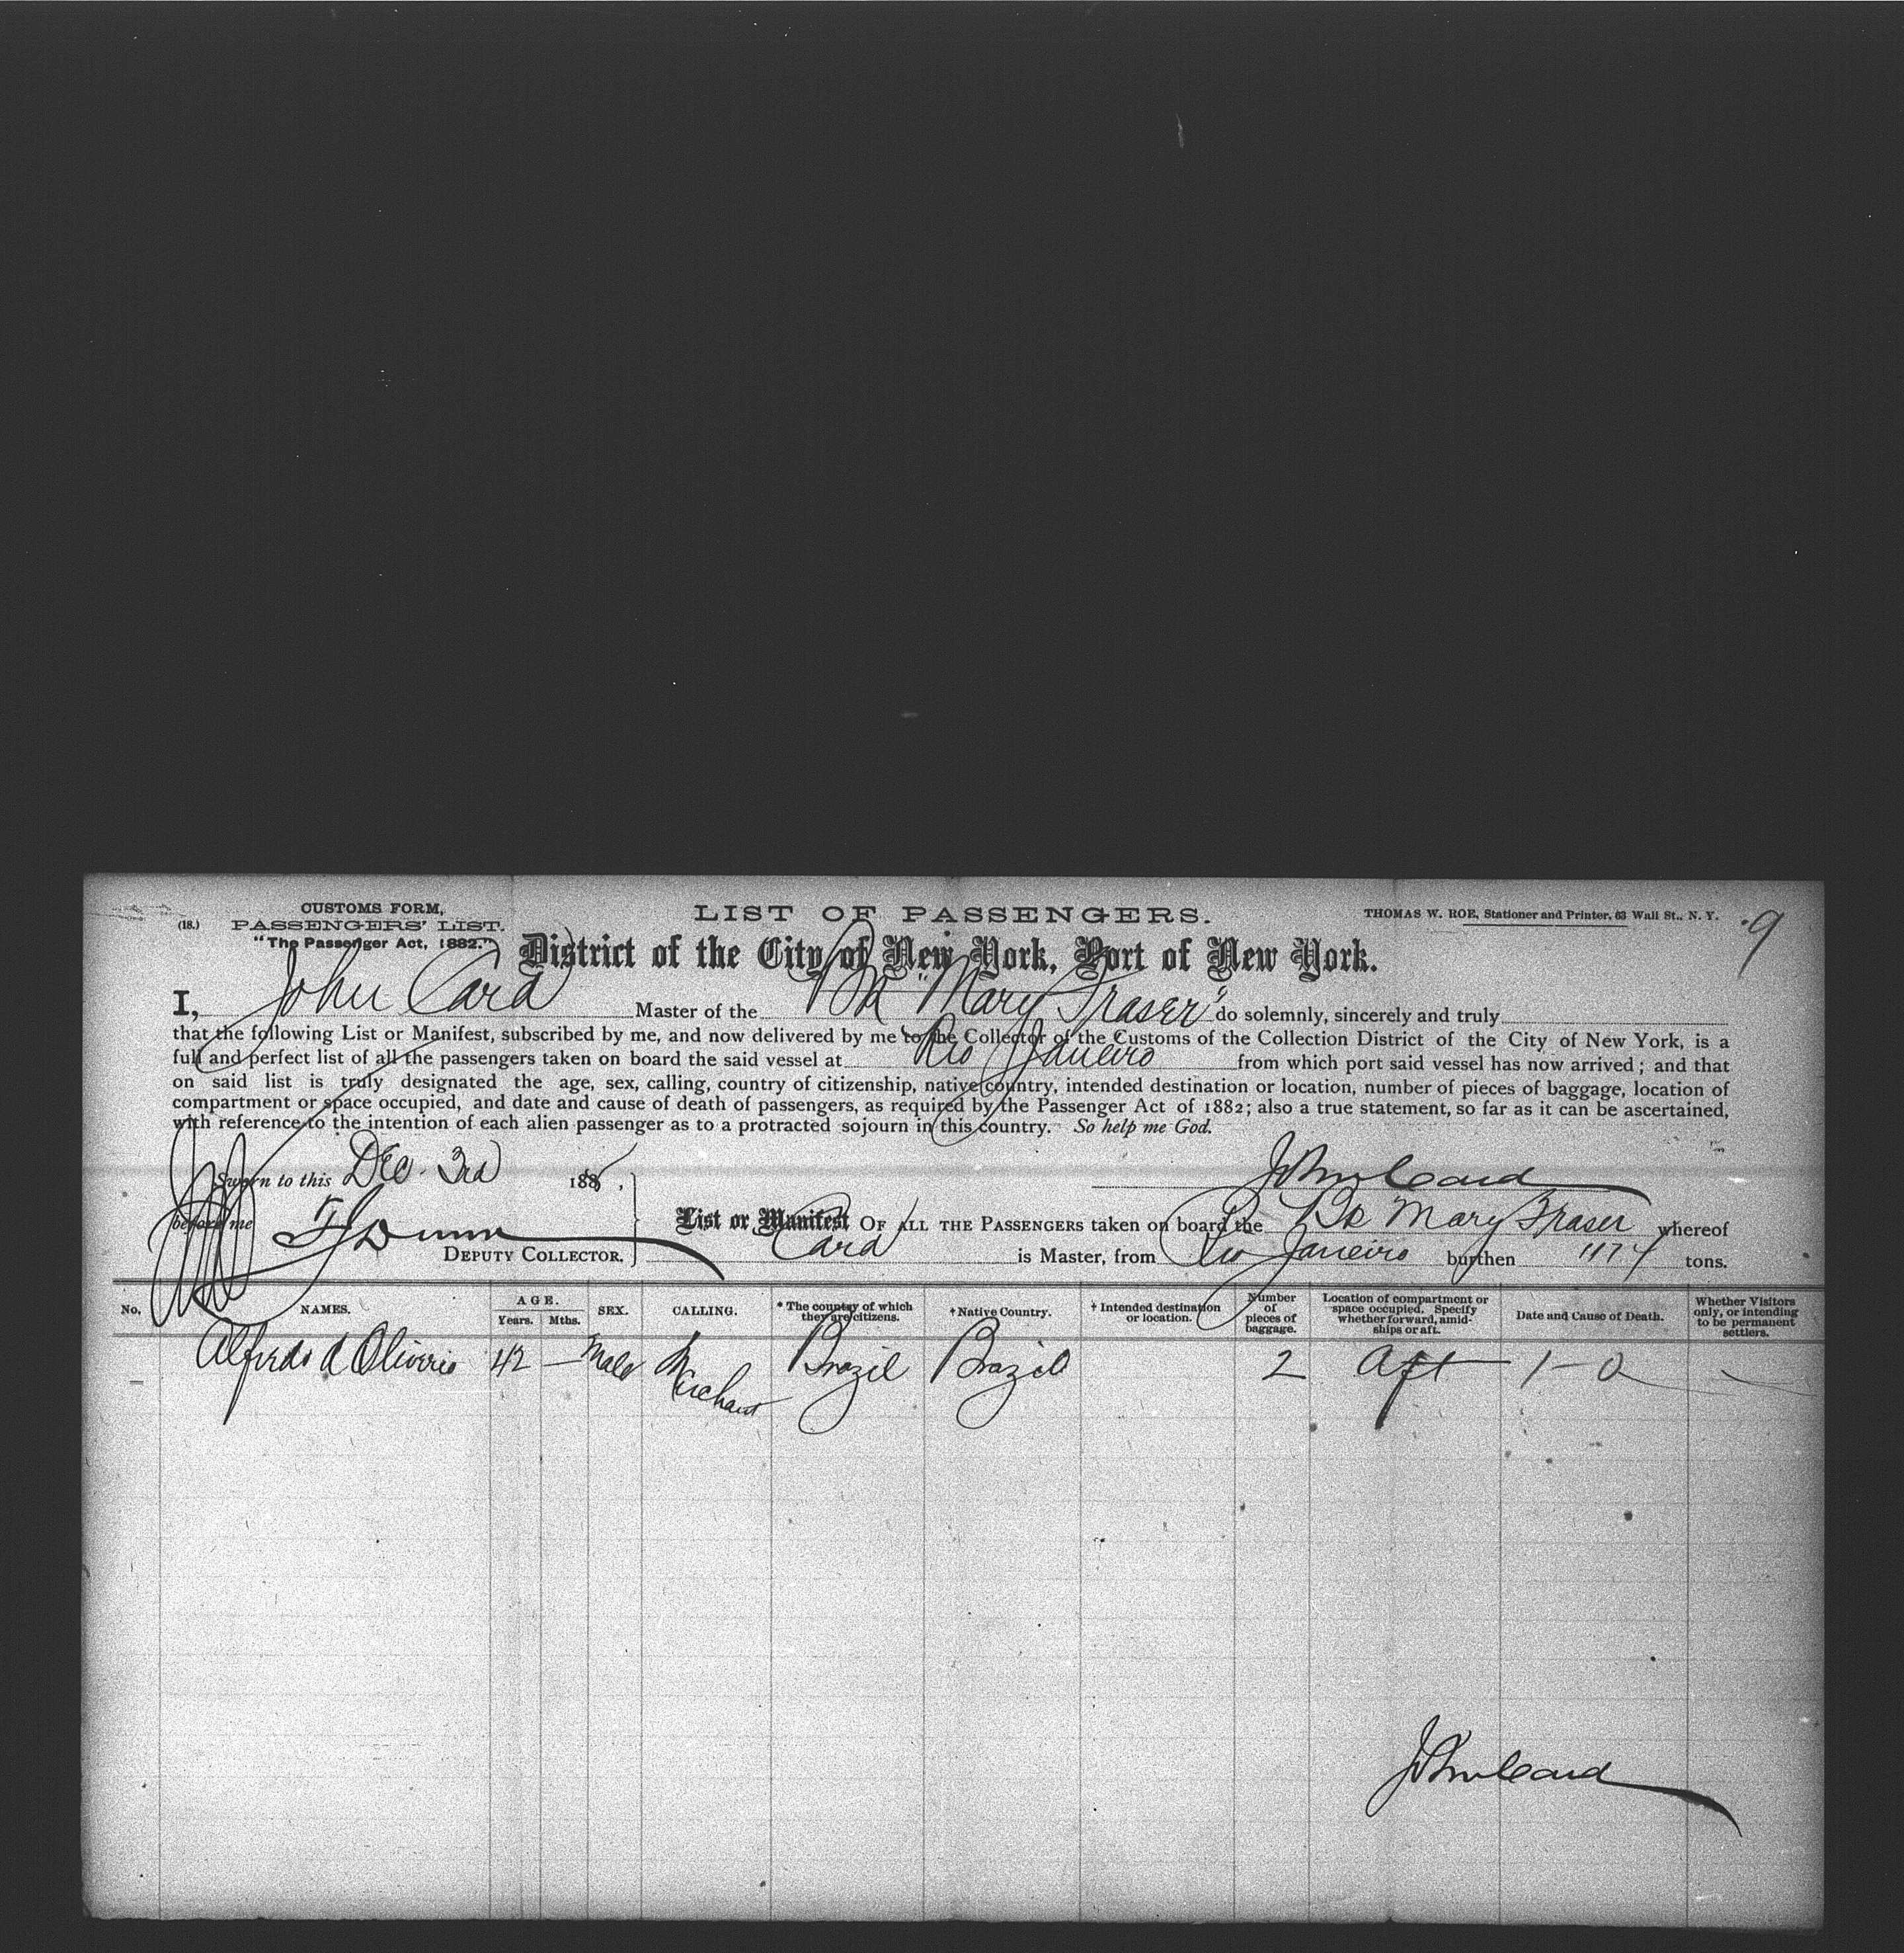 CUSTOMS FORM,
(18.) PASSENGERS' LIST.
"The Passenger Act, 1882."
LIST OF PASSENGERS.
THOMAS W. ROE, Stationer and Printer, 63 Wall St., N. Y.
9
District of the City of New York, Port of New York.
I, John Card Master of the Bk "Mary Fraser" do solemnly, sincerely and truly
that the following List or Manifest, subscribed by me, and now delivered by me to the Collector of the Customs of the Collection District of the City of New York, is a
full and perfect list of all the passengers taken on board the said vessel at Rio Janeiro from which port said vessel has now arrived; and that
on said list is truly designated the age, sex, calling, country of citizenship, native country, intended destination or location, number of pieces of baggage, location of
compartment or space occupied, and date and cause of death of passengers, as required by the Passenger Act of 1882; also a true statement, so far as it can be ascertained,
with reference to the intention of each alien passenger as to a protracted sojourn in this country. So help me God.
Sworn to this Dec. 3rd 188 ,
John Card
before me Dunn
DEPUTY COLLECTOR.
List or Manifest OF ALL THE PASSENGERS taken on board the Bk Mary Fraser whereof
Card is Master, from Rio Janeiro burthen 1174 tons.
No. NAMES. AGE. Years. Mths. SEX. CALLING. * The country of which they are citizens. † Native Country. ‡ Intended destination or location. Number of pieces of baggage. Location of compartment or space occupied. Specify whether forward, amid-ships or aft. Date and Cause of Death. Whether Visitors only, or intending to be permanent settlers.
Alfredo d Oliveris 42 — Male Merchant Brazil Brazil 2 Aft 1 - 0
John Card